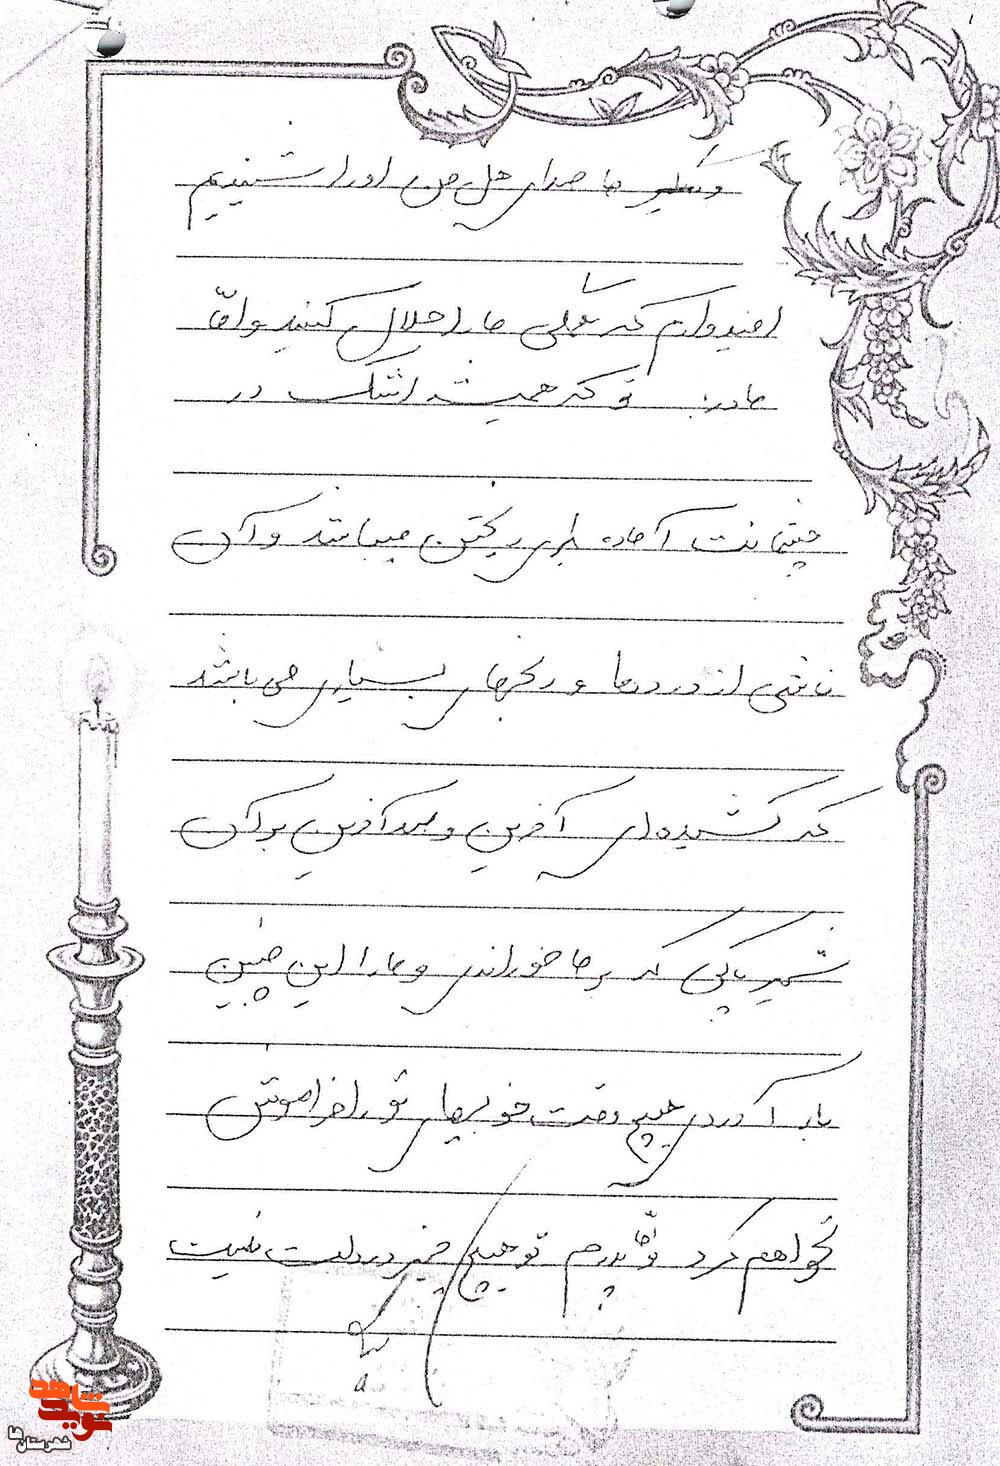 و بگوید ما صدای هل من او را شنیدیم
امیدوارم که همگی ما را حلال کنید و امّا
مادر: تو که همیشه اشک در
چشمانت آماده برای ریختن میباشد و آن
ناشی از دردها و رنجهای بسیاری می باشد
که کشیده‌ای آفرین و صد آفرین بر آن
شیر پاکی که بر ما خوراندی و ما را این چنین
بار آوردی هیچ وقت خوبیهای تو را فراموش
نخواهم کرد و امّا پدرم تو هیچ چیز در دلت نیست
نوید شاهد
شهرستان ها